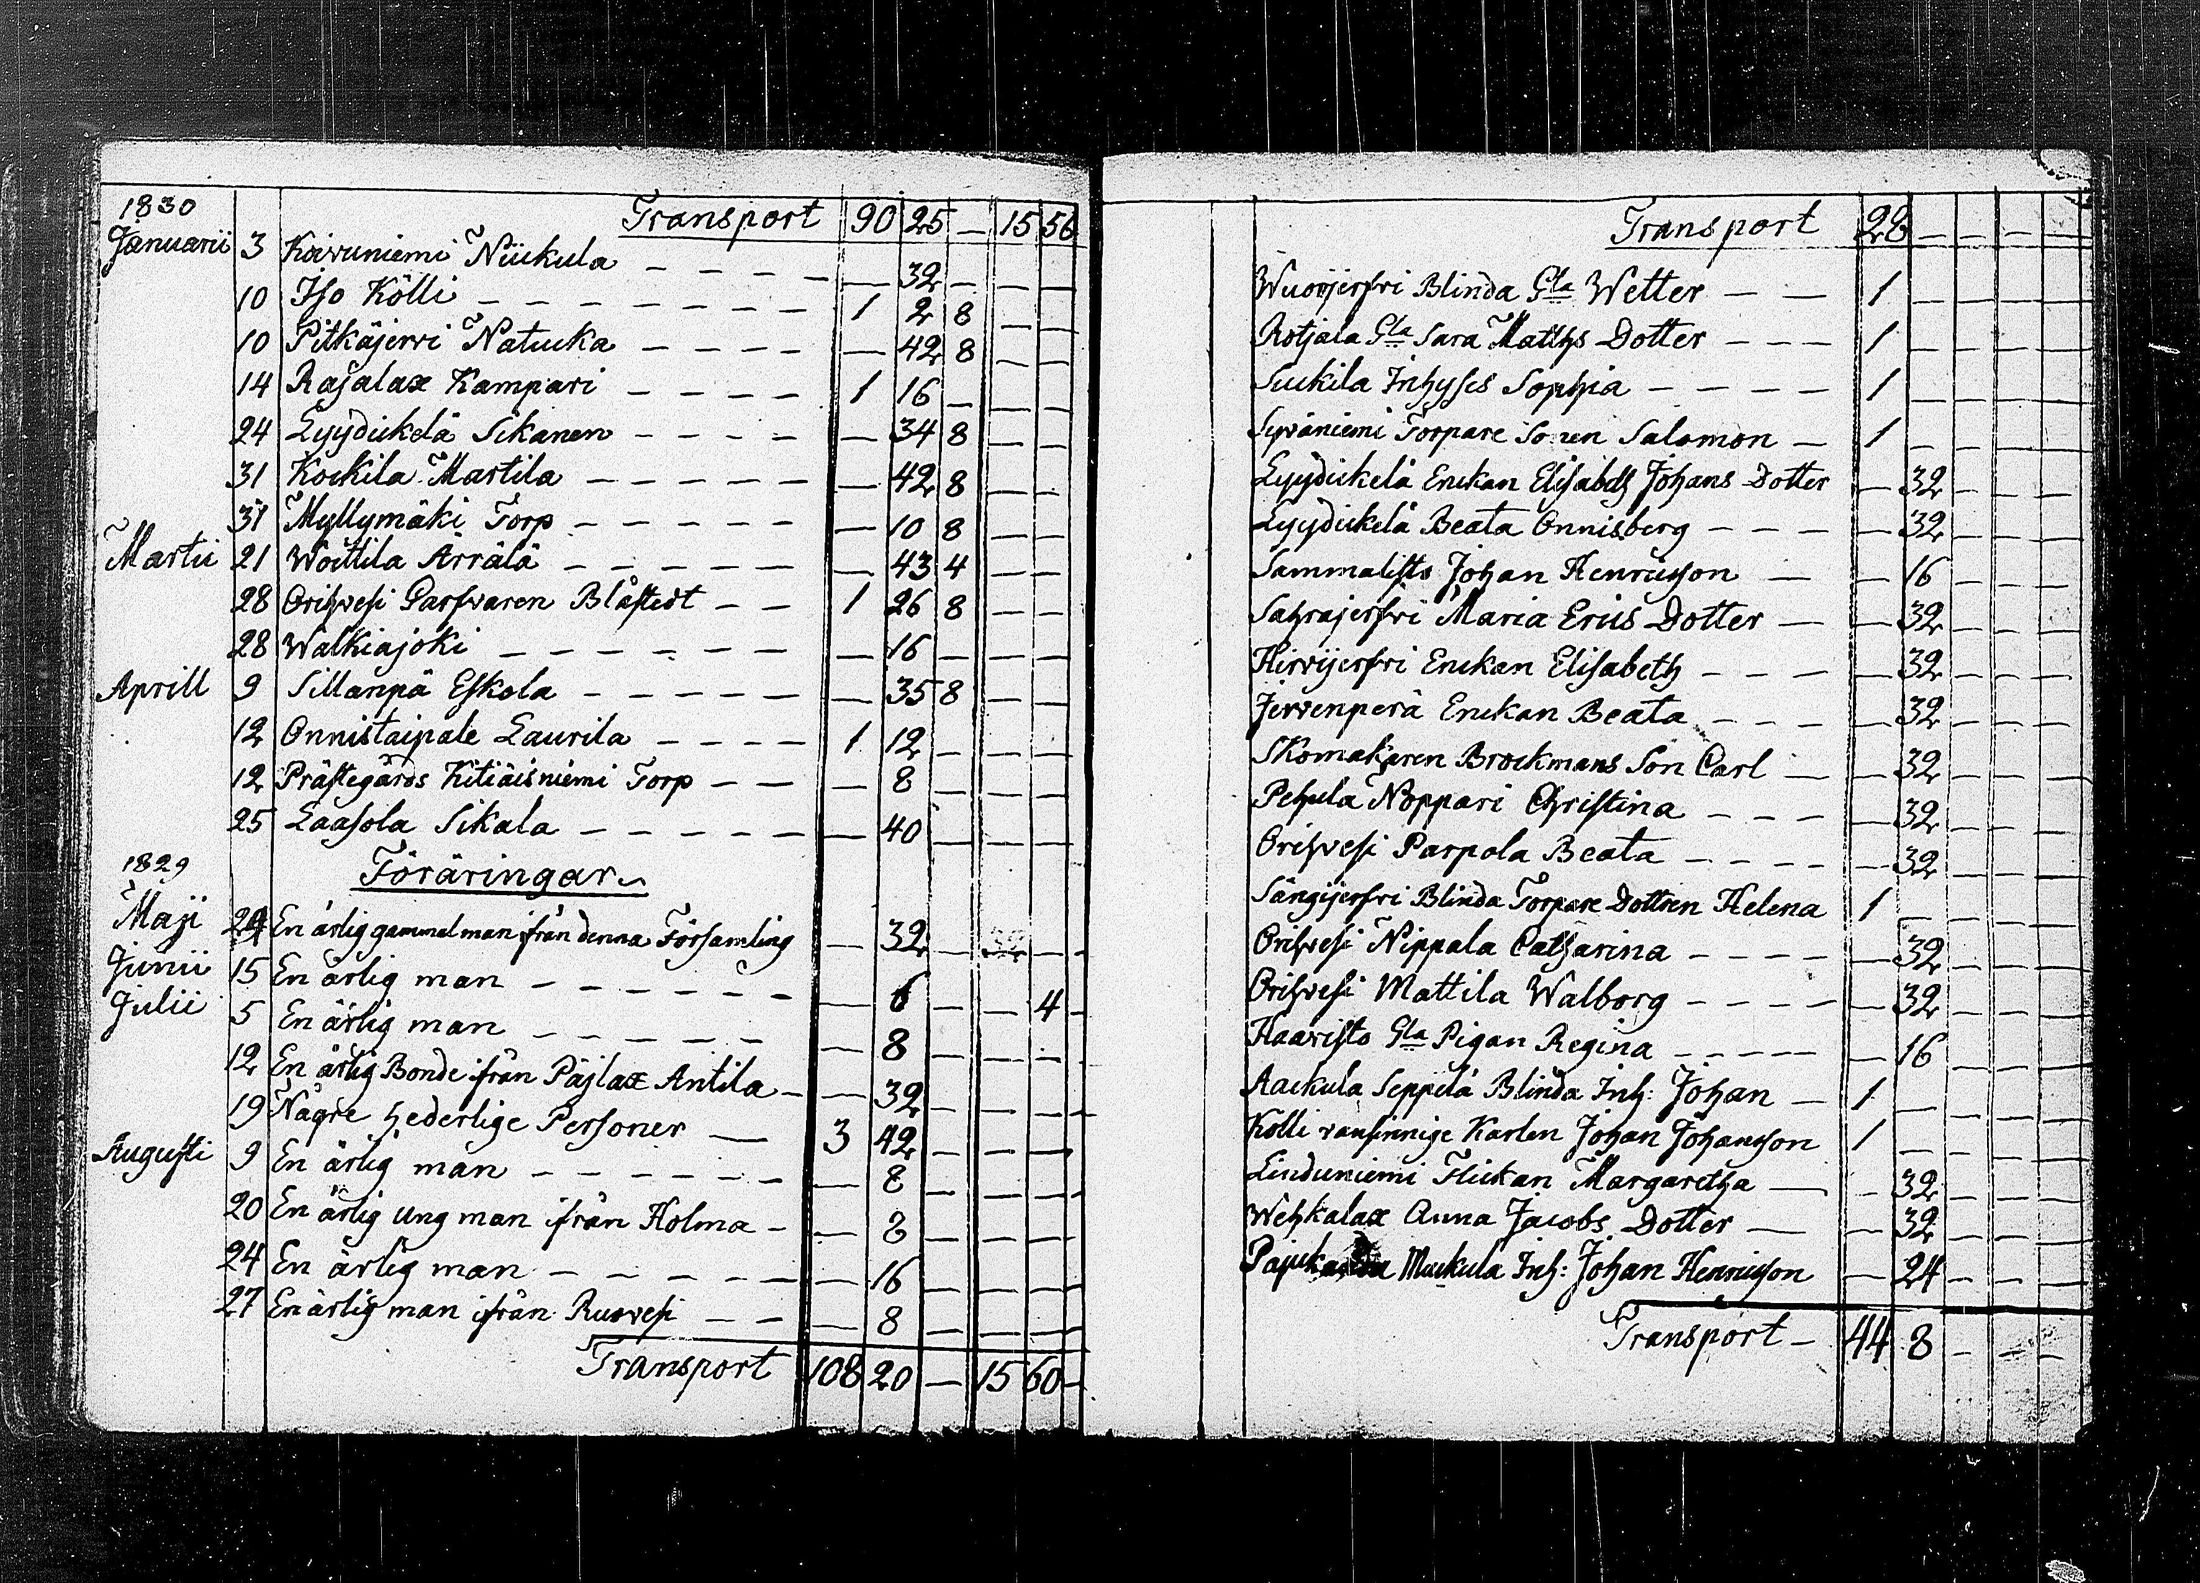 1830 Transport 90 25 — 15 56
Januarii 3 Koivuniemi Niukula — — — — — 32 — — —
10 Iso Kölli — — — — — — — 1 2 8 — —
10 Pitkäjerwi Natucka — — — — — 42 8 — —
14 Rasalax Kampari — — — — 1 16 — — —
24 Lyydickelä Sikanen — — — — — 34 8 — —
31 Kockila Martila — — — — — — 42 8 — —
31 Myllymäki Torp — — — — — — 10 8 — —
Martii 21 Woittila Ärrälä — — — — — — 43 4 — —
28 Orihvesi Garfvaren Blåstedt — — 1 26 8 — —
28 Walkiajoki — — — — — — — 16 — — —
Aprill 9 Sillanpä Eskola — — — — — — 35 8 — —
12 Onnistaipale Laurila — — — — 1 12 — — —
12 Prästegårds Kitiäisniemi Torp — — — 8 — — —
25 Laasola Sikala — — — — — — 40 — — —
1829 Föräringar
Maji 24 En ärlig gammal man ifrån denna Församling — 32 — — —
Junii 15 En ärlig man — — — — — — — 6 — — 4 —
Julii 5 En ärlig man — — — — — — 8 — — —
12 En ärlig Bonde ifrån Päjlax Antila — — 32 — — —
19 Någre hederlige Personer — 3 42 — — —
Augusti 9 En ärlig man — — — — — — — 8 — — —
20 En ärlig ung man ifrån Holma — — 8 — — —
24 En ärlig man — — — — — — 16 — — —
27 En ärlig man ifrån Ruovesi — — — 8 — — —
Transport 108 20 — 15 60 —
Transport 28 — — — —
Wuorjerfvi Blinda Gla Wetter — — 1 — — — —
Rotjala Gla Sara Matths Dotter — — — 1 — — — —
Suckila Inhyses Sophia — — — — 1 — — — —
Syväniemi Torpare Sonen Salomon — 1 — — — —
Lyydickelä Enckan Elisabeth Johans Dotter — 32 — — —
Lyydickelä Beata Onnisberg — — — — 32 — — —
Sammalisto Johan Henricsson — — 16 — — —
Sahrajerfvi Maria Erics Dotter — — 32 — — —
Hirvijerfvi Enckan Elisabeth — — — — 32 — — —
Jervenperä Enckan Beata — — — — 32 — — —
Skomakaren Brockmans Son Carl — — 32 — — —
Pehula Noppari Christina — — — — 32 — — —
Orihvesi Parpola Beata — — — — — 32 — — —
Sängijerfvi Blinda Torpare Dottren Helena 1 — — — —
Orihvesi Nippala Catharina — — — — — 32 — — —
Orihvesi Mattila Walborg — — — — — 32 — — —
Haaristo Gla Pigan Regina — — — — — — 16 — — —
Aackula Seppelä Blinda Inh: Johan — 1 — — — —
Kölli vansinnige Karlen Johan Johansson 1 — — — —
Linduniemi Flickan Margaretha — — 32 — — —
Wehkalax Anna Jacobs Dotter — — 32 — — —
Muckula Inh: Johan Henricsson — 24 — — —
Transport — 44 8 — — —